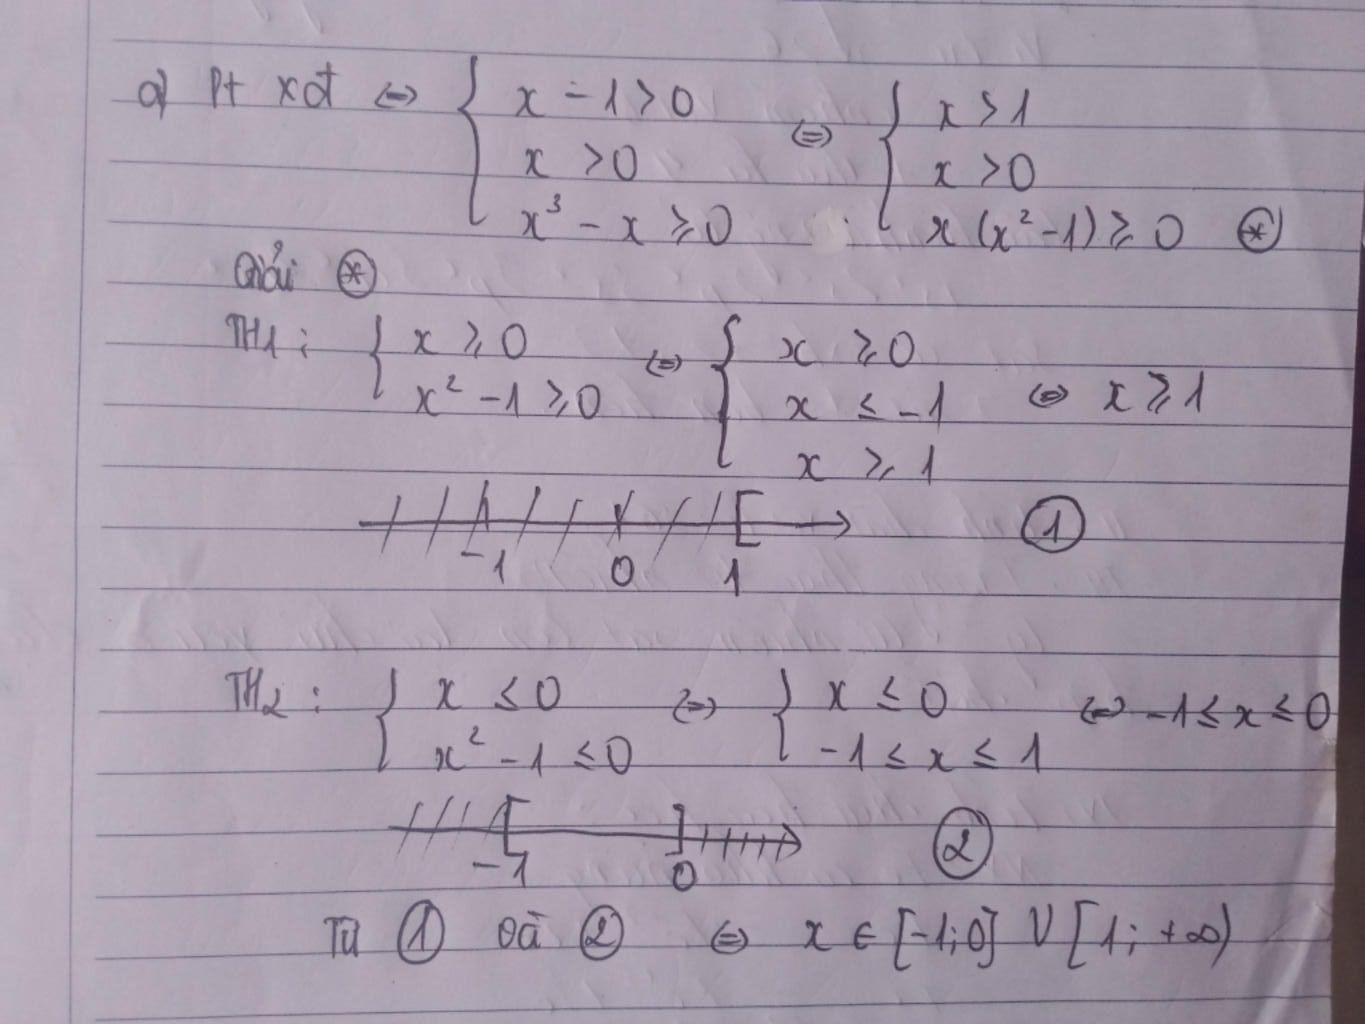 a) Pt xđ ⇔ { x - 1 > 0 ⇔ { x > 1
x > 0 x > 0
x³ - x ≥ 0 x (x² - 1) ≥ 0 (*)
Giải (*)
TH1 : { x ≥ 0 ⇔ { x ≥ 0
x² - 1 ≥ 0 x ≤ -1 ⇔ x ≥ 1
x ≥ 1
-1 0 1 ①
TH2 : { x ≤ 0 ⇔ { x ≤ 0 ⇔ -1 ≤ x ≤ 0
x² - 1 ≤ 0 -1 ≤ x ≤ 1
-1 0 ②
Từ ① và ② ⇔ x ∈ [-1; 0] ∪ [1; +∞)